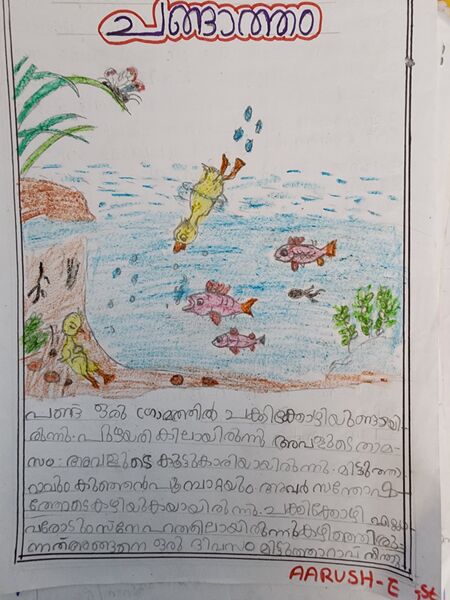 ചങ്ങാത്തം
പണ്ട ഒരു ഗ്രാമത്തിൽ ചക്കിക്കോഴിയുണ്ടായി
രുന്നു. പുഴയരികിലായിരുന്നു അവളുടെ താമ
സം. അവളുടെ കൂട്ടുകാരിയായിരുന്നു. മിട്ടുത്താ
റാവും കുഞ്ഞൻപൂമ്പാറ്റയും അവർ സന്തോഷ
ത്തോടെകഴിയുകയായിരുന്നു. ചക്കിക്കോഴി എല്ലാ
വരോടും സ്നേഹത്തിലായിരുന്നുകഴിഞ്ഞിരു
ന്നത്അങ്ങനെ ഒരു ദിവസം മിട്ടുത്താറാവ് നീന്തു
AARUSH-E